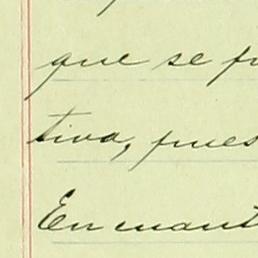 que se p
tiva, pues
En cuant